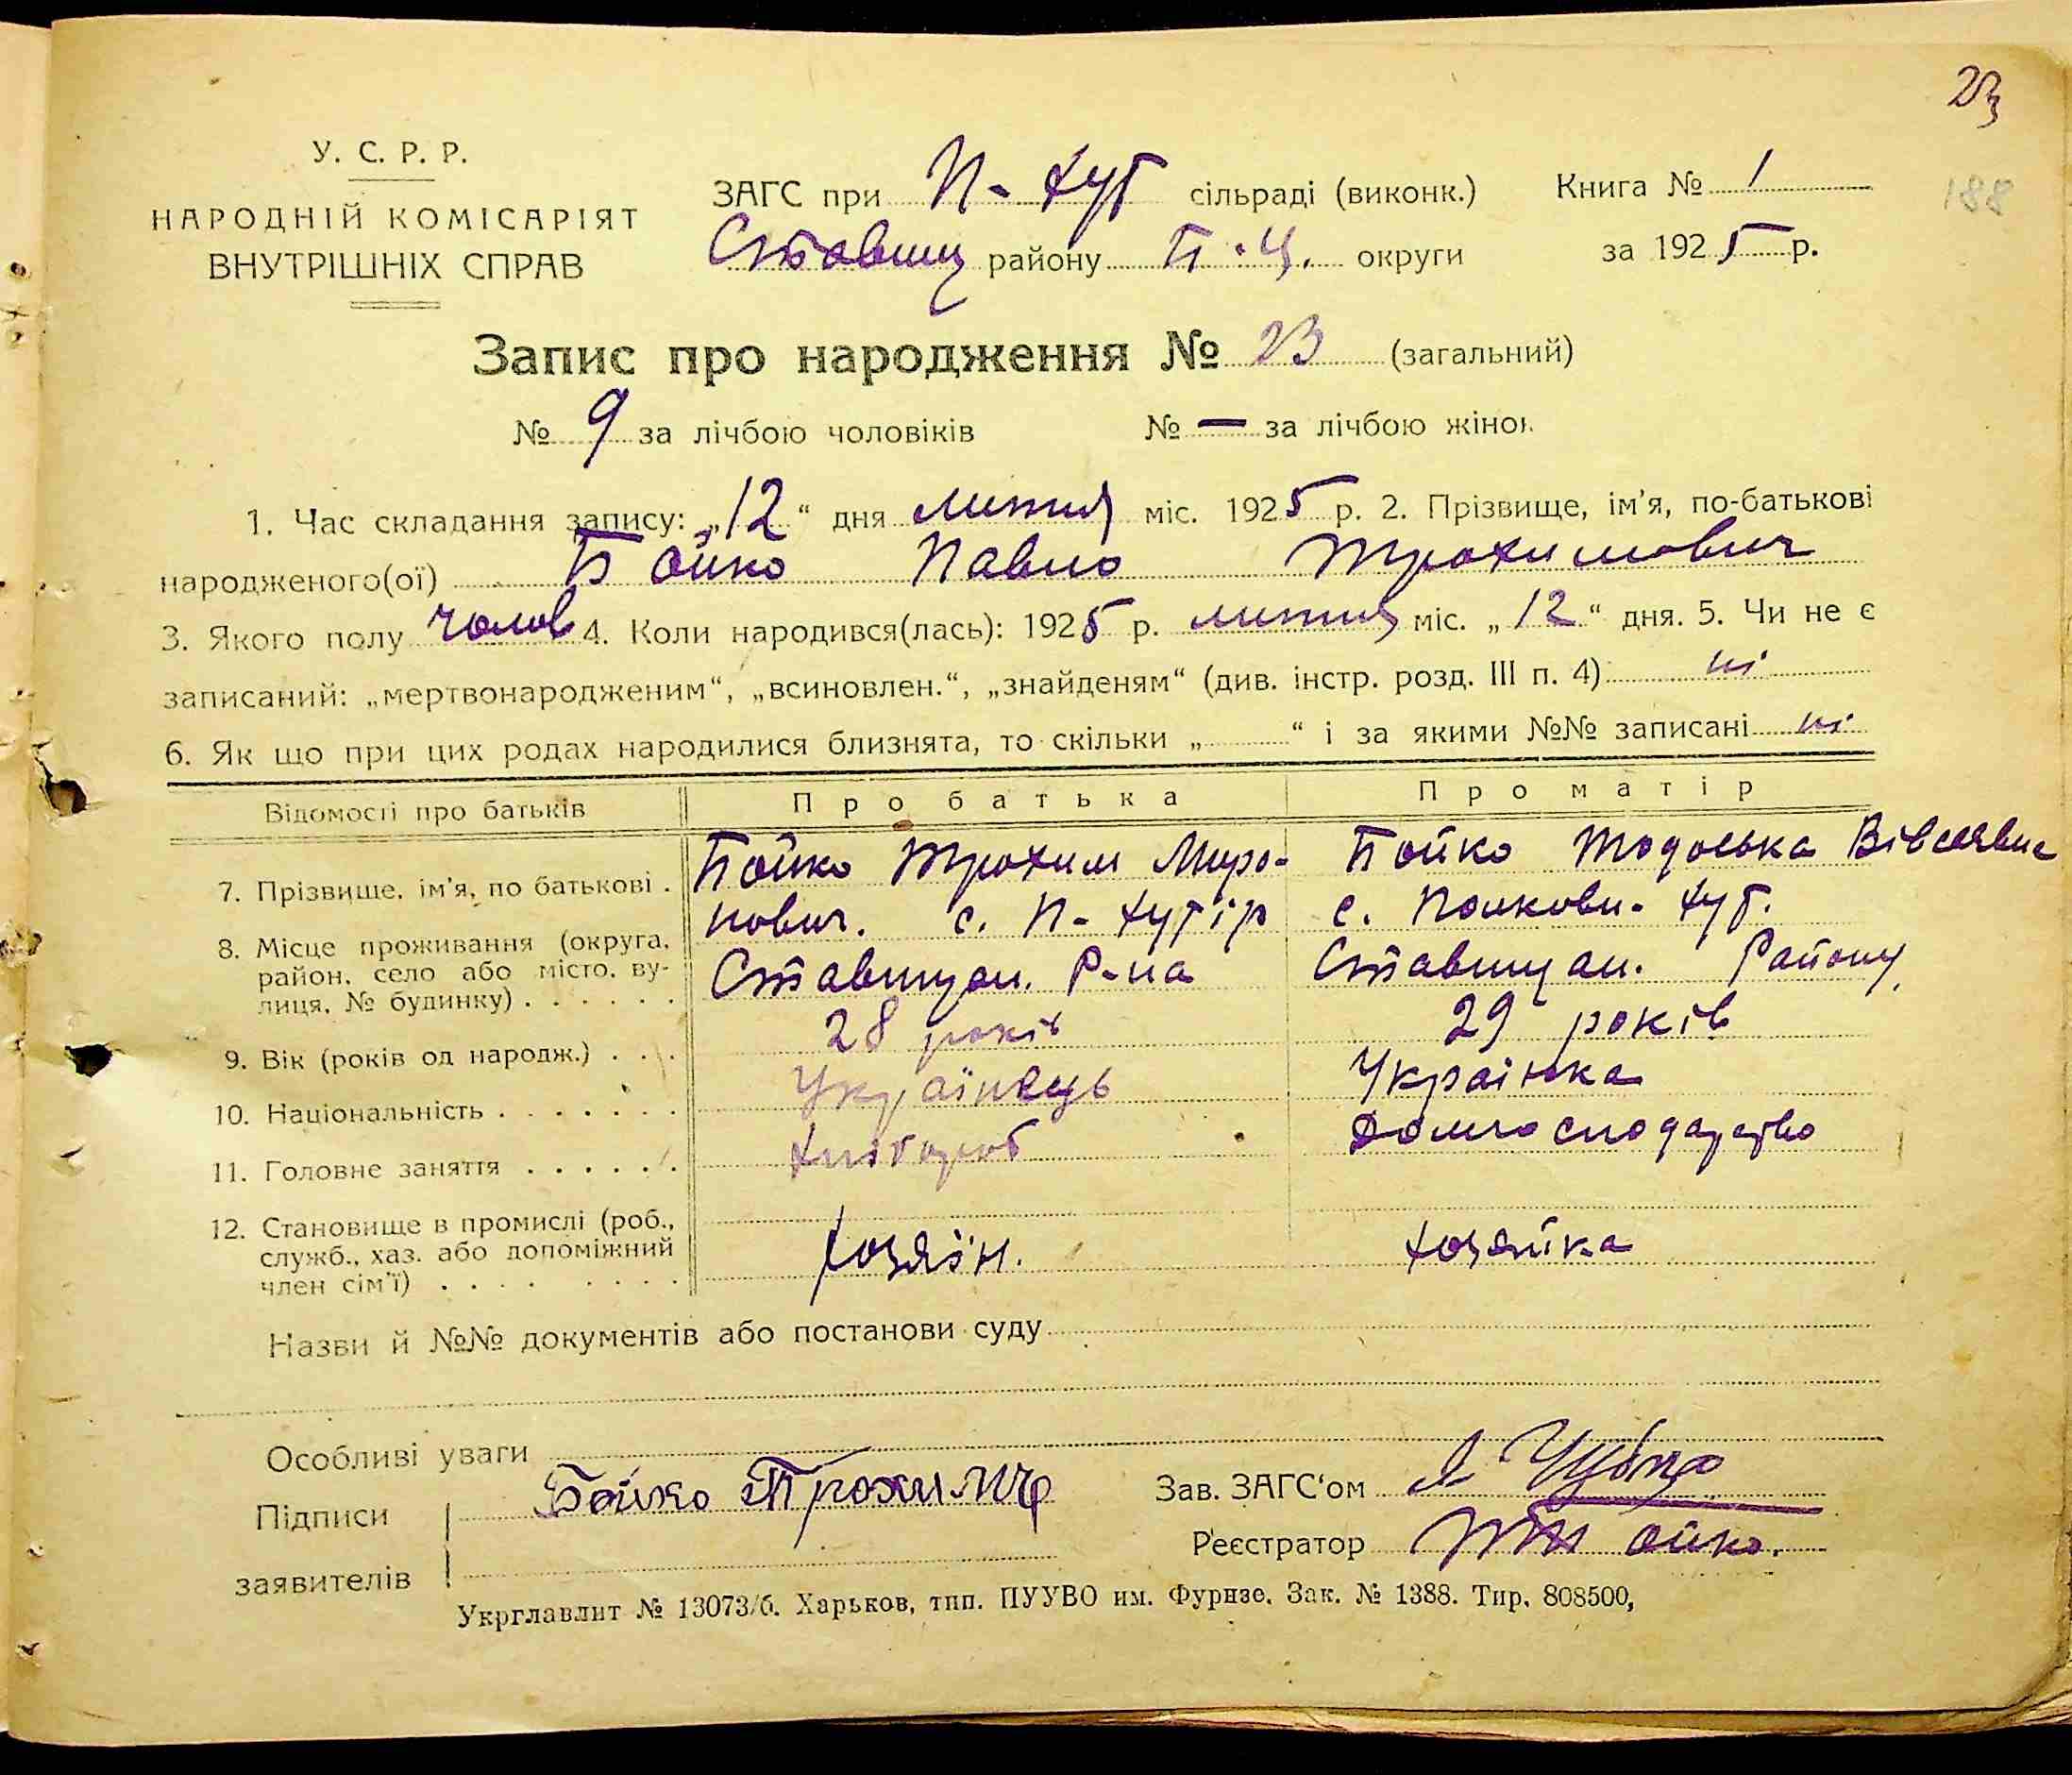 23
188
У. С. Р. Р.
НАРОДНІЙ КОМІСАРІЯТ
ВНУТРІШНІХ СПРАВ
ЗАГС при П-Хут сільраді (виконк.) Книга № 1
Ставищ району Б.Ц. округи за 1925 р.
Запис про народження № 23 (загальний)
№ 9 за лічбою чоловіків № — за лічбою жінок
1. Час складання запису: „12“ дня лютня міс. 1925 р. 2. Прізвище, ім'я, по-батькові
народженого(ої) Бойко Павло Трохимович
3. Якого полу чолов 4. Коли народився(лась): 1925 р. лютня міс. „12“ дня. 5. Чи не є
записаний: „мертвонародженим“, „всиновлен.“, „знайденям“ (див. інстр. розд. III п. 4) ні
6. Як що при цих родах народилися близнята, то скільки „ “ і за якими №№ записані ні
Відомості про батьків Про батька Про матір
7. Прізвище, ім'я, по батькові . Бойко Трохим Миро- Бойко Тодоська
нович. с. П-Хутір с. Полкови-Хут.
8. Місце проживання (округа, район, село або місто, ву-лиця, № будинку) . . . . . . Ставищан. Р-на Ставищан. Району
9. Вік (років од народж.) . . . 28 років 29 років
10. Національність . . . . . . . Українець Українка
11. Головне заняття . . . . . . Хлібороб Домгосподарство
12. Становище в промислі (роб.,
служб., хаз. або допоміжний
член сім'ї) . . . . . . . . Хозяїн. Хозяйка
Назви й №№ документів або постанови суду
Особливі уваги
Підписи Бойко Зав. ЗАГС'ом
заявителів Реєстратор
Укрглавлит № 13073/б. Харьков, тип. ПУУВО им. Фурнзе. Зак. № 1388. Тир. 808500,